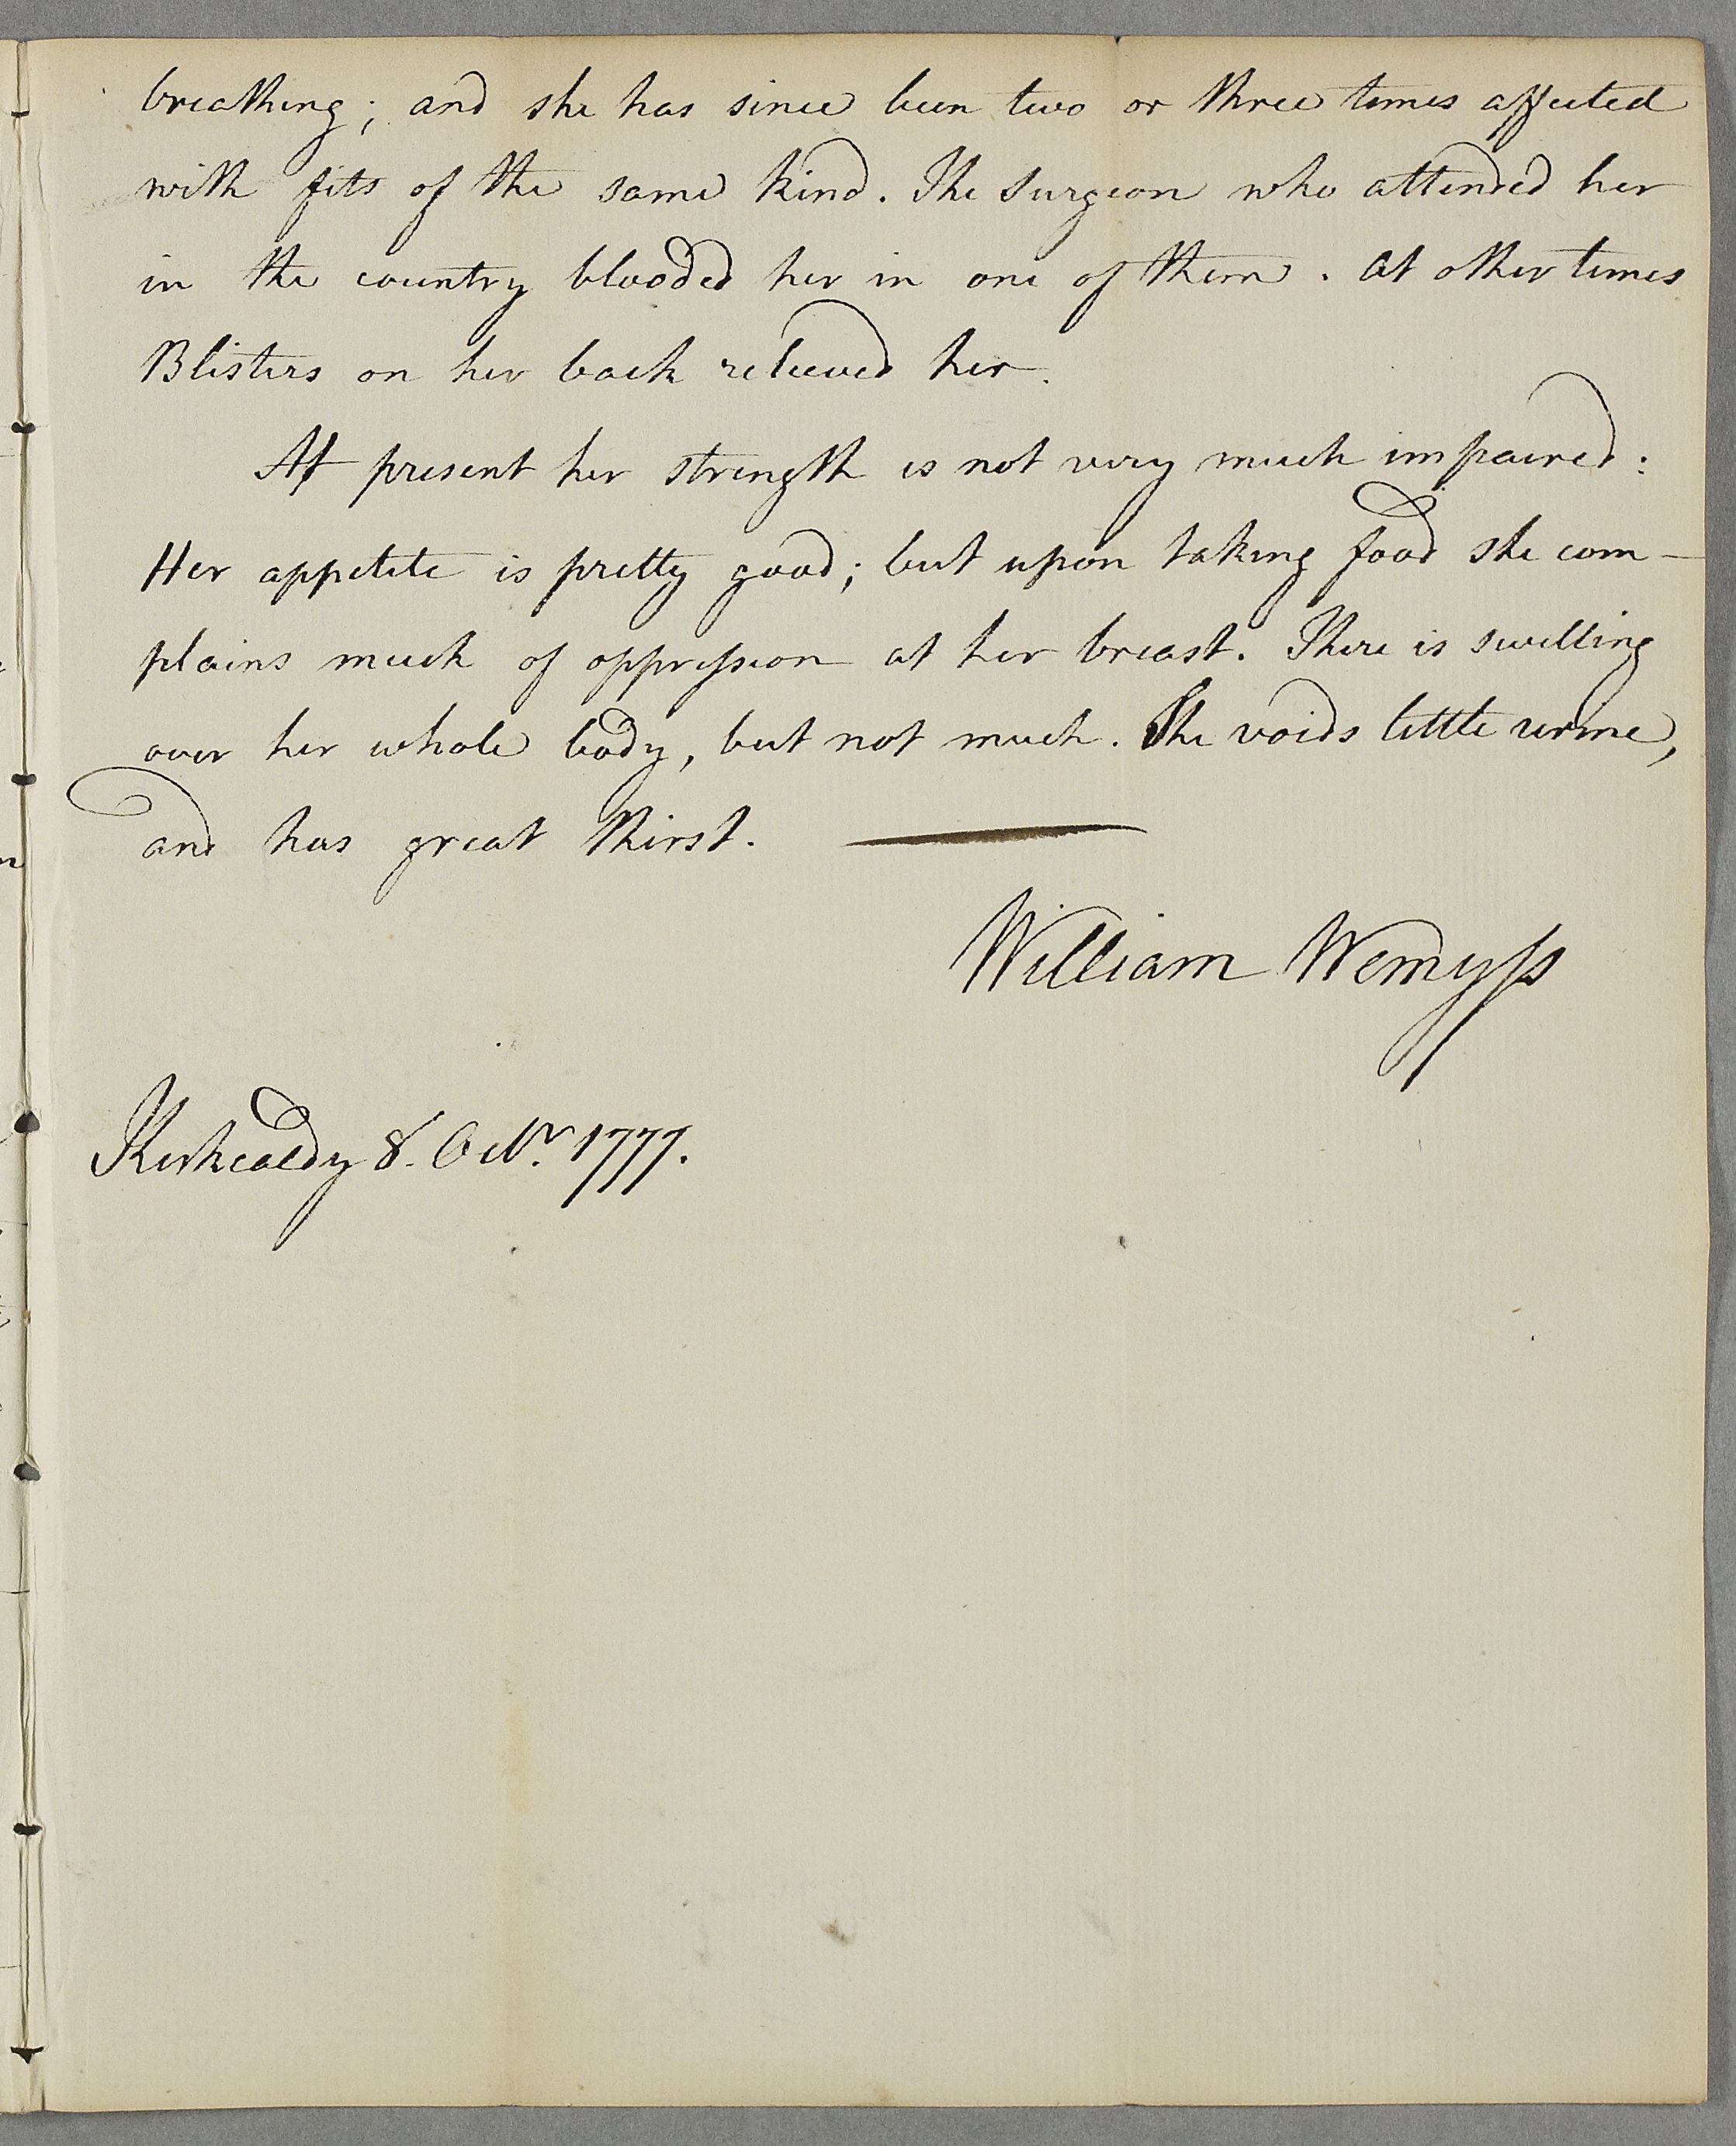 breathing; and she has since been two or three times affected
with fits of the same kind. The Surgeon who attended her
in the country blooded her in one of them. At other times
Blisters on her back relieved her.
At present her strength is not very much impaired:
Her appetite is pretty good; but upon taking food she com-
plains much of oppreſsion at her breast. There is swelling
over her whole body, but not much. She voids little urine,
and has great thirst.
William Wemyſs
Kirkcaldy 8. Octr. 1777.